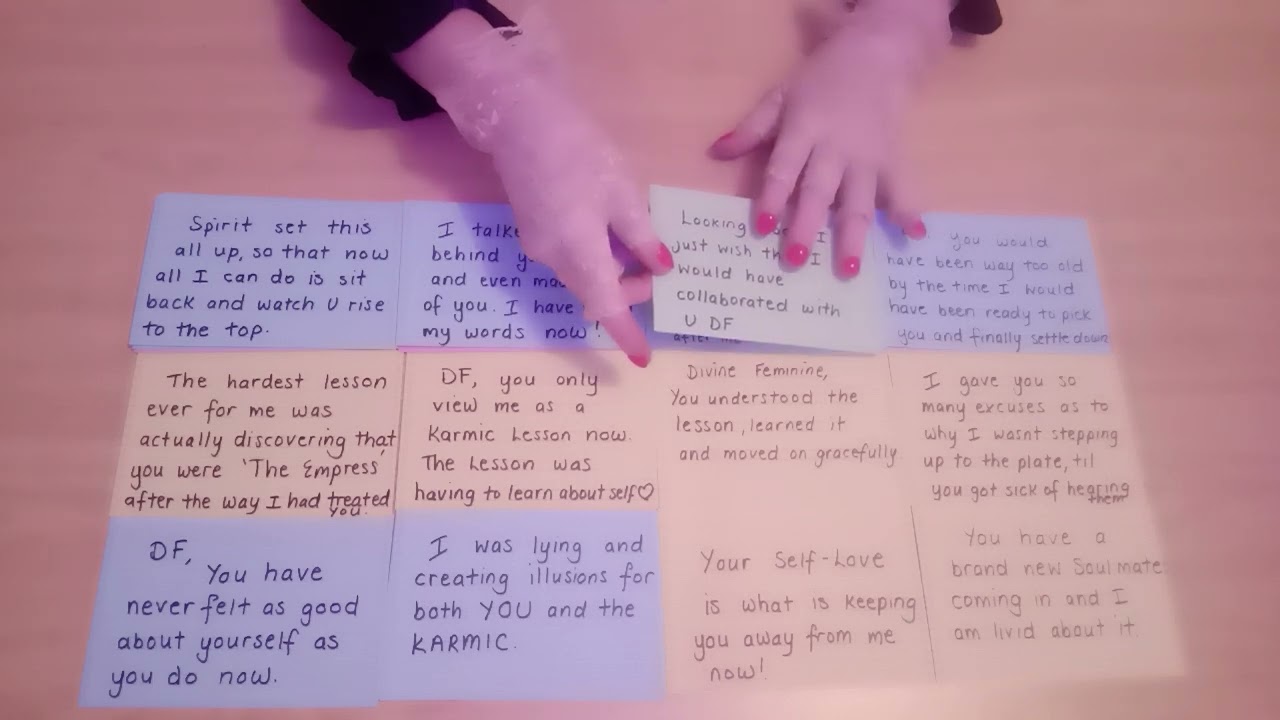 Spirit set this
all up, so that now
all I can do is sit
back and watch U rise
to the top.
I
behind
and even
of you. I have
my words now!
Looking I
just wish I
would have
collaborated with
U DF
after me
you would
have been way too old
by the time I would
have been ready to pick
you and finally settle down
The hardest lesson
ever for me was
actually discovering that
you were 'The Empress'
after the way I had treated
you.
DF, you only
view me as a
Karmic Lesson now.
The Lesson was
having to learn about self♡
Divine Feminine,
You understood the
lesson, learned it
and moved on gracefully.
I gave you so
many excuses as to
why I wasnt stepping
up to the plate, til
you got sick of hearing
them
DF,
You have
never felt as good
about yourself as
you do now.
I was lying and
creating illusions for
both YOU and the
KARMIC.
Your Self-Love
is what is keeping
you away from me
now!
You have a
brand new Soulmate
coming in and I
am livid about it.